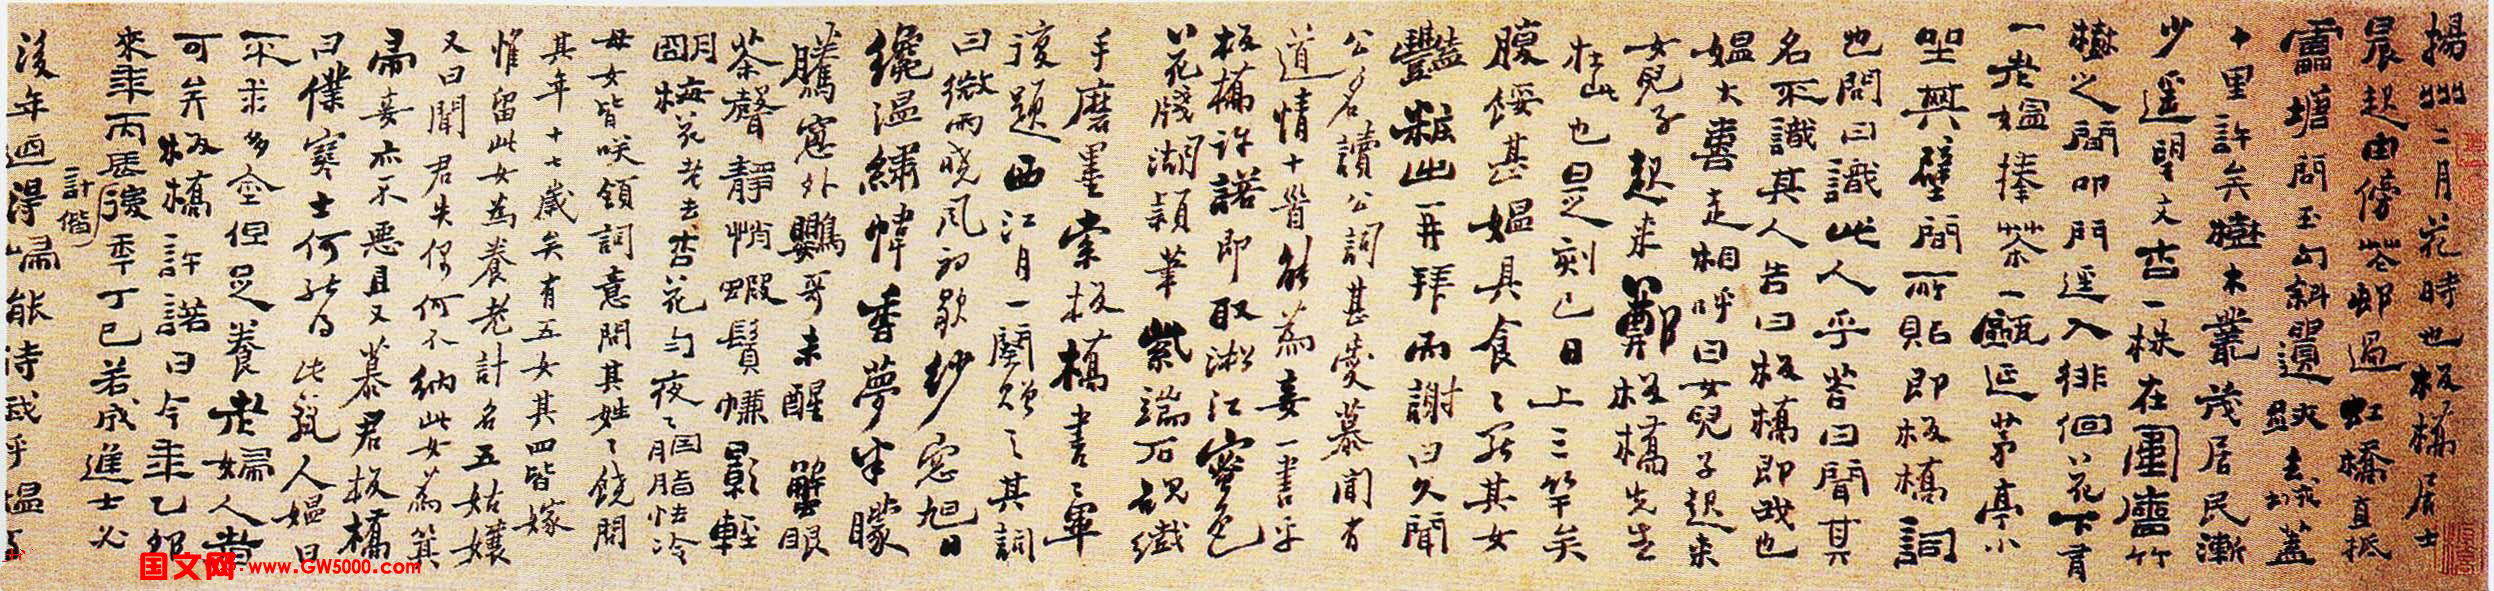 揚州二月花時也板橋居士
晨起由傍花邨過虹橋直抵
靁塘問玉勾斜遺跡去城蓋
十里許矣樹木叢茂居民漸
少遥望文杏一株在圍牆竹
樹之間叩門逕入徘徊花下有
一老媪捧茶一甌延茅亭小
坐其壁間所貼即板橋詞
也問曰識此人乎荅曰聞其
名不識其人告曰板橋即我也
媪大喜走相呼曰女兒子起來
女兒子起來鄭板橋先生
在此也是刻已日上三竿矣
腹餒甚媪具食〻罷其女
豔粧出再拜而謝曰久聞
公名讀公詞甚愛慕聞有
道情十首能為妾一書乎
板橋許諾即取淞江蜜色
花牋湖穎筆紫端石硯纖
手磨墨索板橋書〻畢
復題西江月一闋贈之其詞
曰微雨曉風初歇紗窗旭日
纔温繡幃香夢半朦
騰窗外鸚哥未醒 蟹眼
茶聲靜悄蝦鬚幙影輕
明梅花老去杏花勻夜〻胭脂怯冷
母女皆咲領詞意問其姓〻饒問
其年十七歲矣有五女其四皆嫁
惟留此女為養老計名五姑孃
又曰聞君失偶何不納此女為箕
帚妾亦不惡且又慕君板橋
曰僕寒士何能得此麗人媪曰
不求多金但足養老婦人者
可矣板橋許諾曰今年乙卯
來年丙辰後年丁巳若成進士必
計偕
後年廼得歸能待我乎媪
国文网·www.GW5000.com